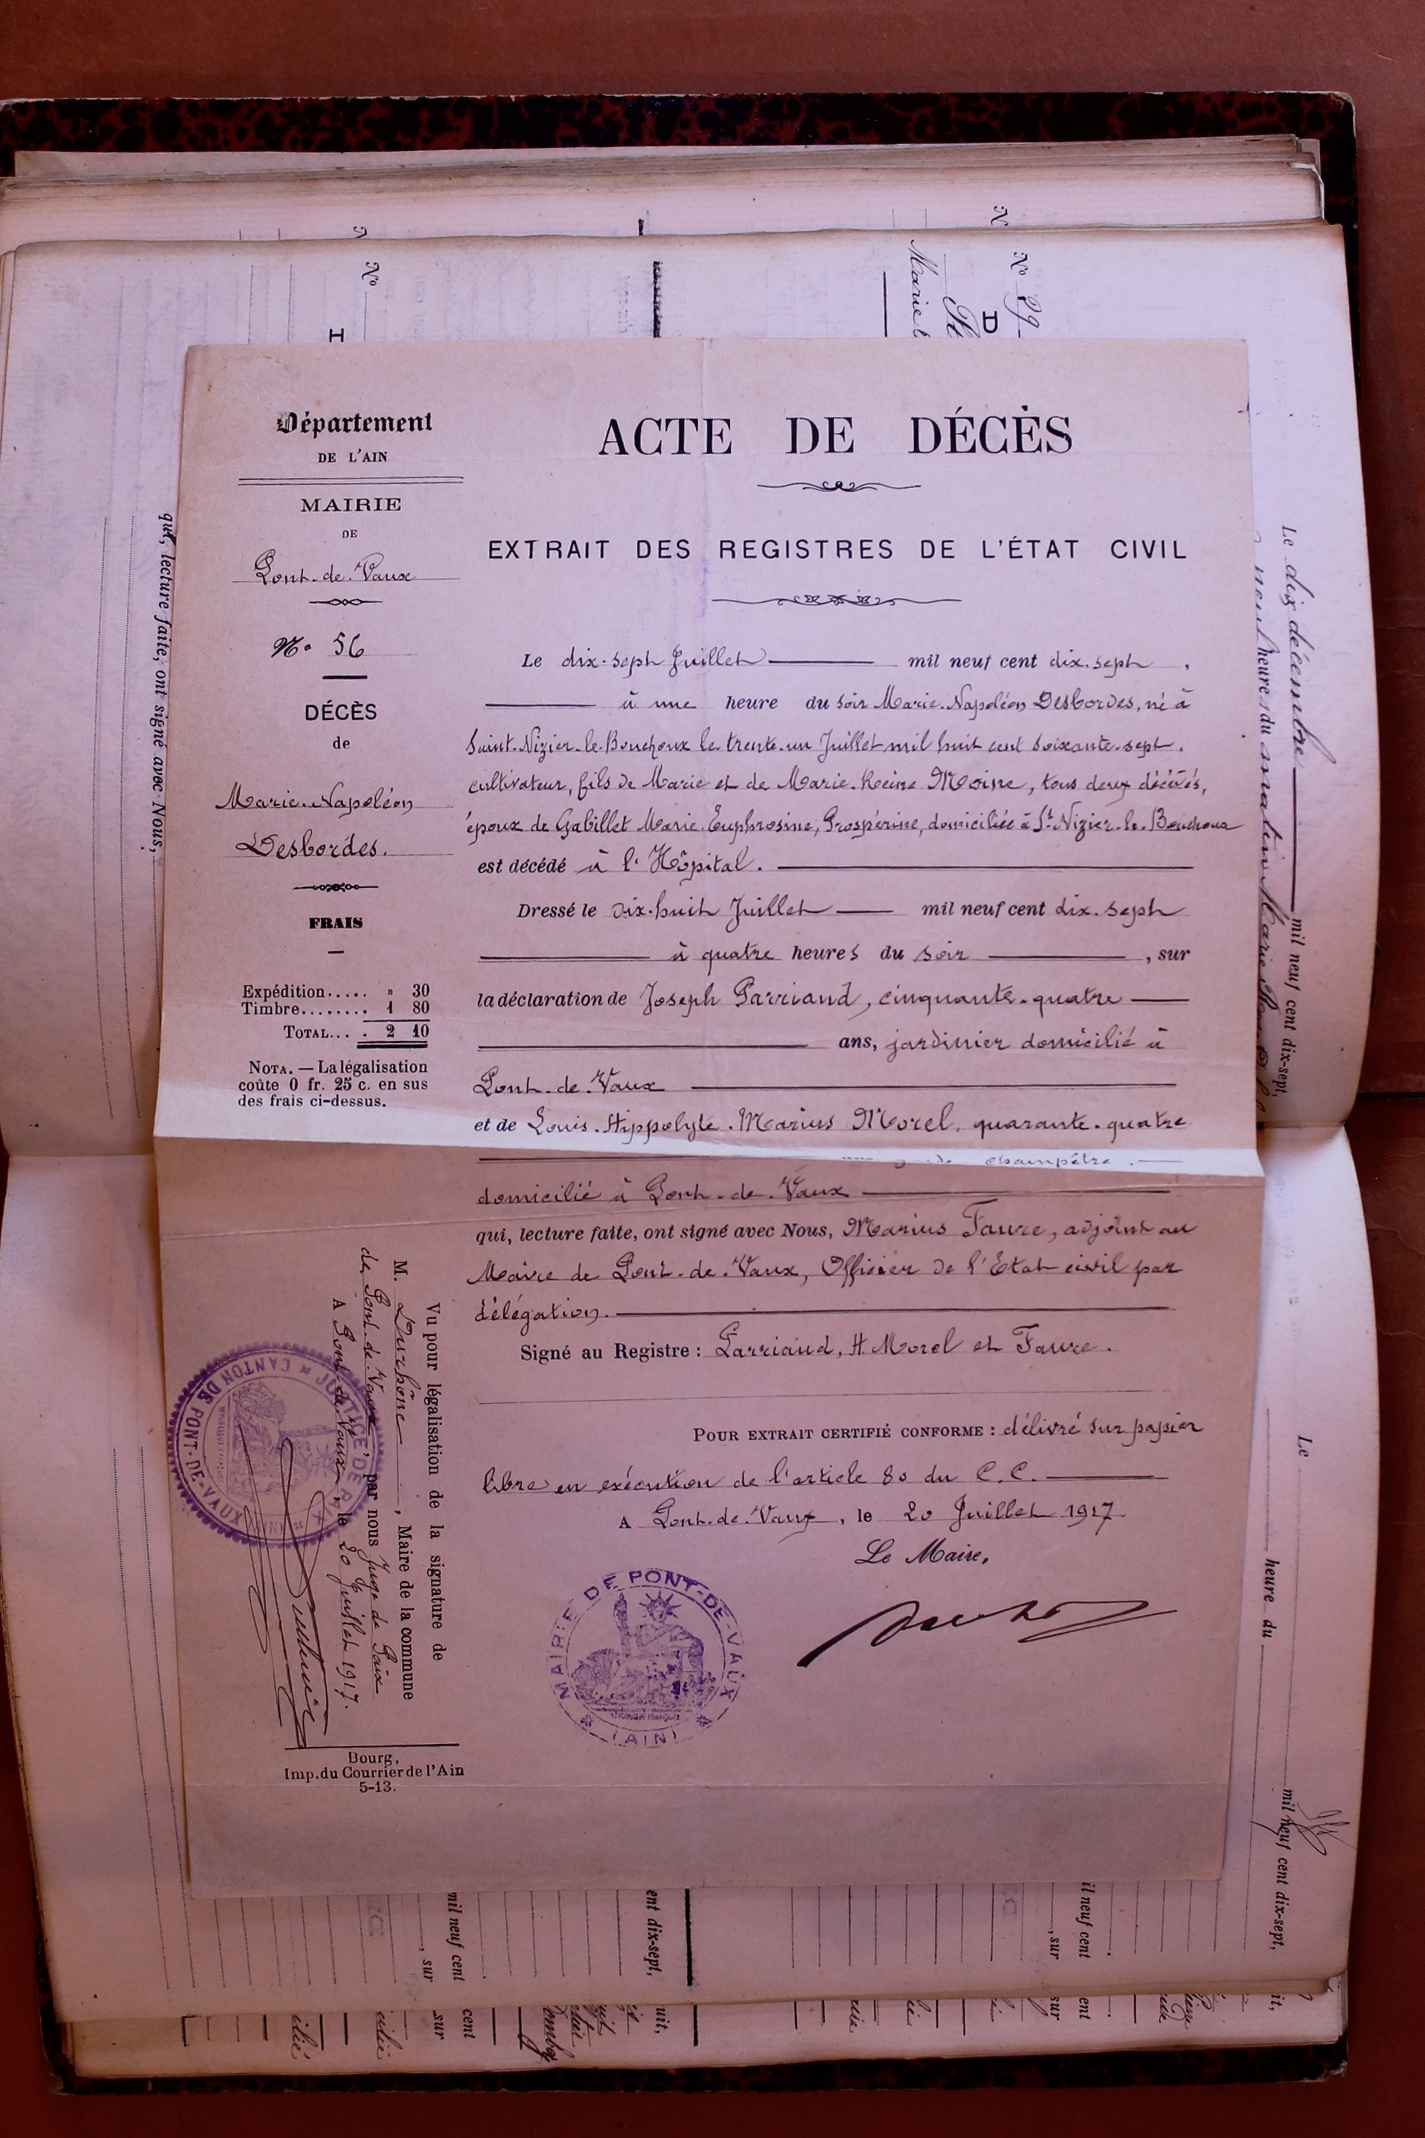 Département
DE L'AIN
MAIRIE
DE
Pont-de-Vaux
N° 56
DÉCÈS
de
Marie-Napoléon
Desbordes.
FRAIS
Expédition..... " 30
Timbre........ 1 80
TOTAL.... 2 10
NOTA. — La légalisation
coûte 0 fr. 25 c. en sus
des frais ci-dessus.
ACTE DE DÉCÈS
EXTRAIT DES REGISTRES DE L'ÉTAT CIVIL
Le dix-sept Juillet mil neuf cent dix-sept,
à une heure du soir Marie-Napoléon Desbordes, né à
Saint-Nizier-le-Bouchoux le trente-un Juillet mil huit cent soixante-sept.
cultivateur, fils de Marie et de Marie-Reine Moine, tous deux décédés,
époux de Gabillet Marie-Euphrosine, Prospérine, domiciliée à St-Nizier-le-Bouchoux
est décédé à l'Hôpital.
Dressé le dix-huit Juillet mil neuf cent dix-sept
à quatre heures du soir, sur
la déclaration de Joseph Parriaud, cinquante-quatre
ans, jardinier domicilié à
Pont-de-Vaux
et de Louis-Hippolyte-Marius Morel, quarante-quatre
champêtre
domicilié à Pont-de-Vaux
qui, lecture faite, ont signé avec Nous, Marius Faure, adjoint au
Maire de Pont-de-Vaux, Officier de l'Etat civil par
délégation.
Signé au Registre : Parriaud, H Morel et Faure.
POUR EXTRAIT CERTIFIÉ CONFORME : délivré sur papier
libre en exécution de l'article 80 du C. C.
A Pont-de-Vaux, le 20 Juillet 1917
Le Maire,
MAIRIE DE PONT-DE-VAUX
(AIN)
Vu pour légalisation de la signature de
M. Durhône, Maire de la commune
de Pont-de-Vaux, par nous Juge de Paix
A Pont-de-Vaux, le 20 Juillet 1917.
JUSTICE DE PAIX
CANTON DE PONT-DE-VAUX
Bourg,
Imp. du Courrier de l'Ain
5-13.
qui, lecture faite, ont signé avec Nous,
N°
N° 29
D
Le dix décembre mil neuf cent dix-sept,
heure du matin Marie
Le
heure du
mil neuf cent dix-sept,
mil neuf cent
, sur
ent dix-sept,
il neuf cent
, sur
cent
sur
uit,